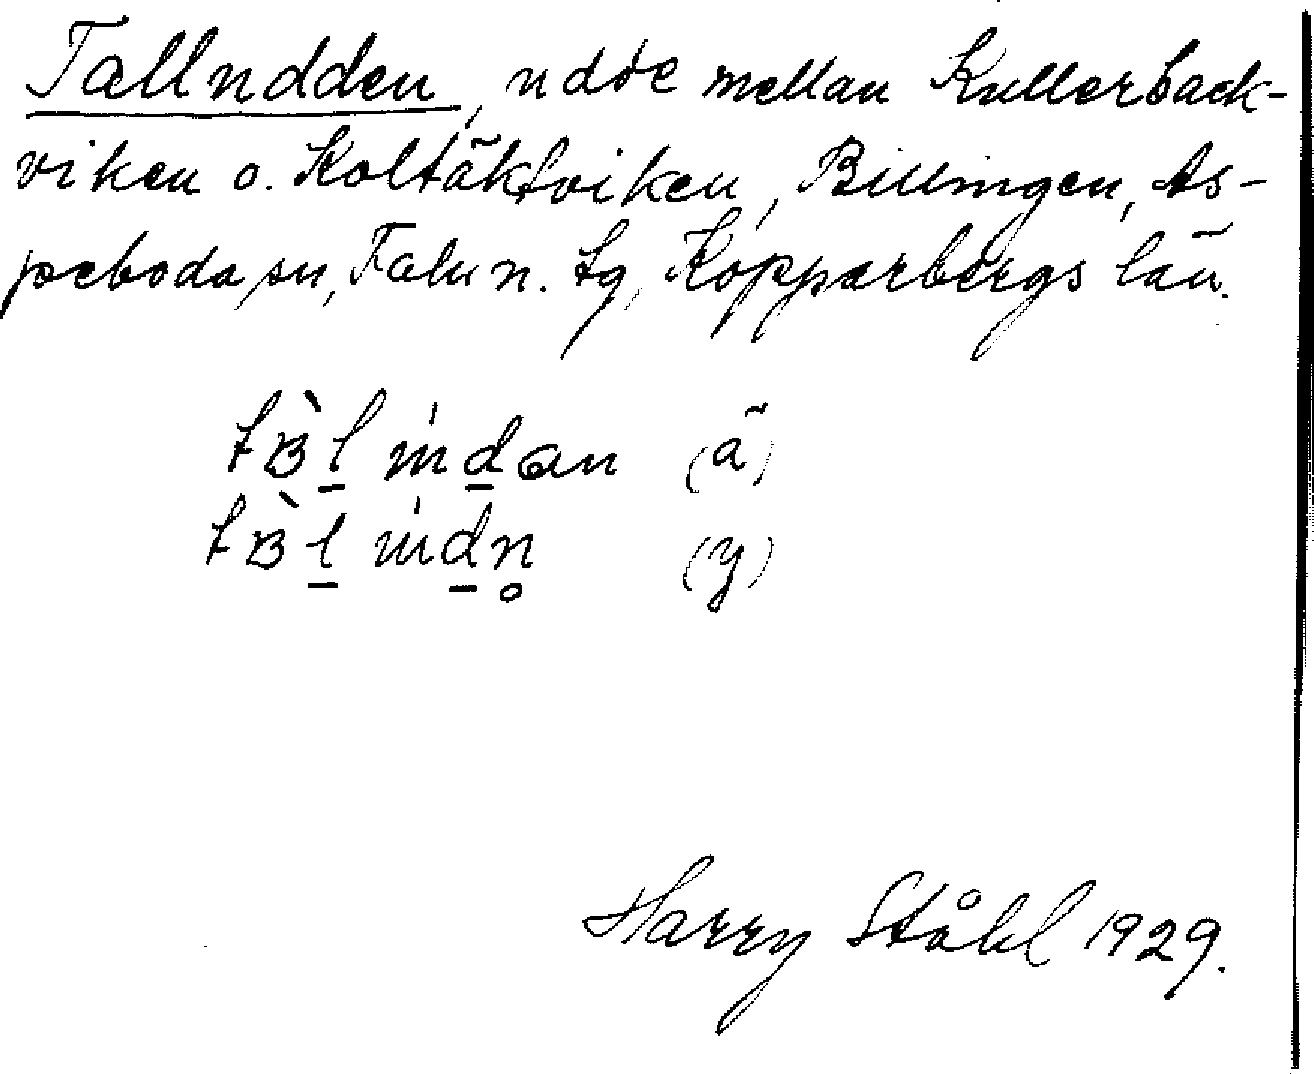 Talludden, udde mellan Kullerback-
viken o. Koltäktviken, Billingen, As-
peboda sn, Falu n. tg, Kopparbergs län.
(ä)
(y)
Harry Ståhl 1929.